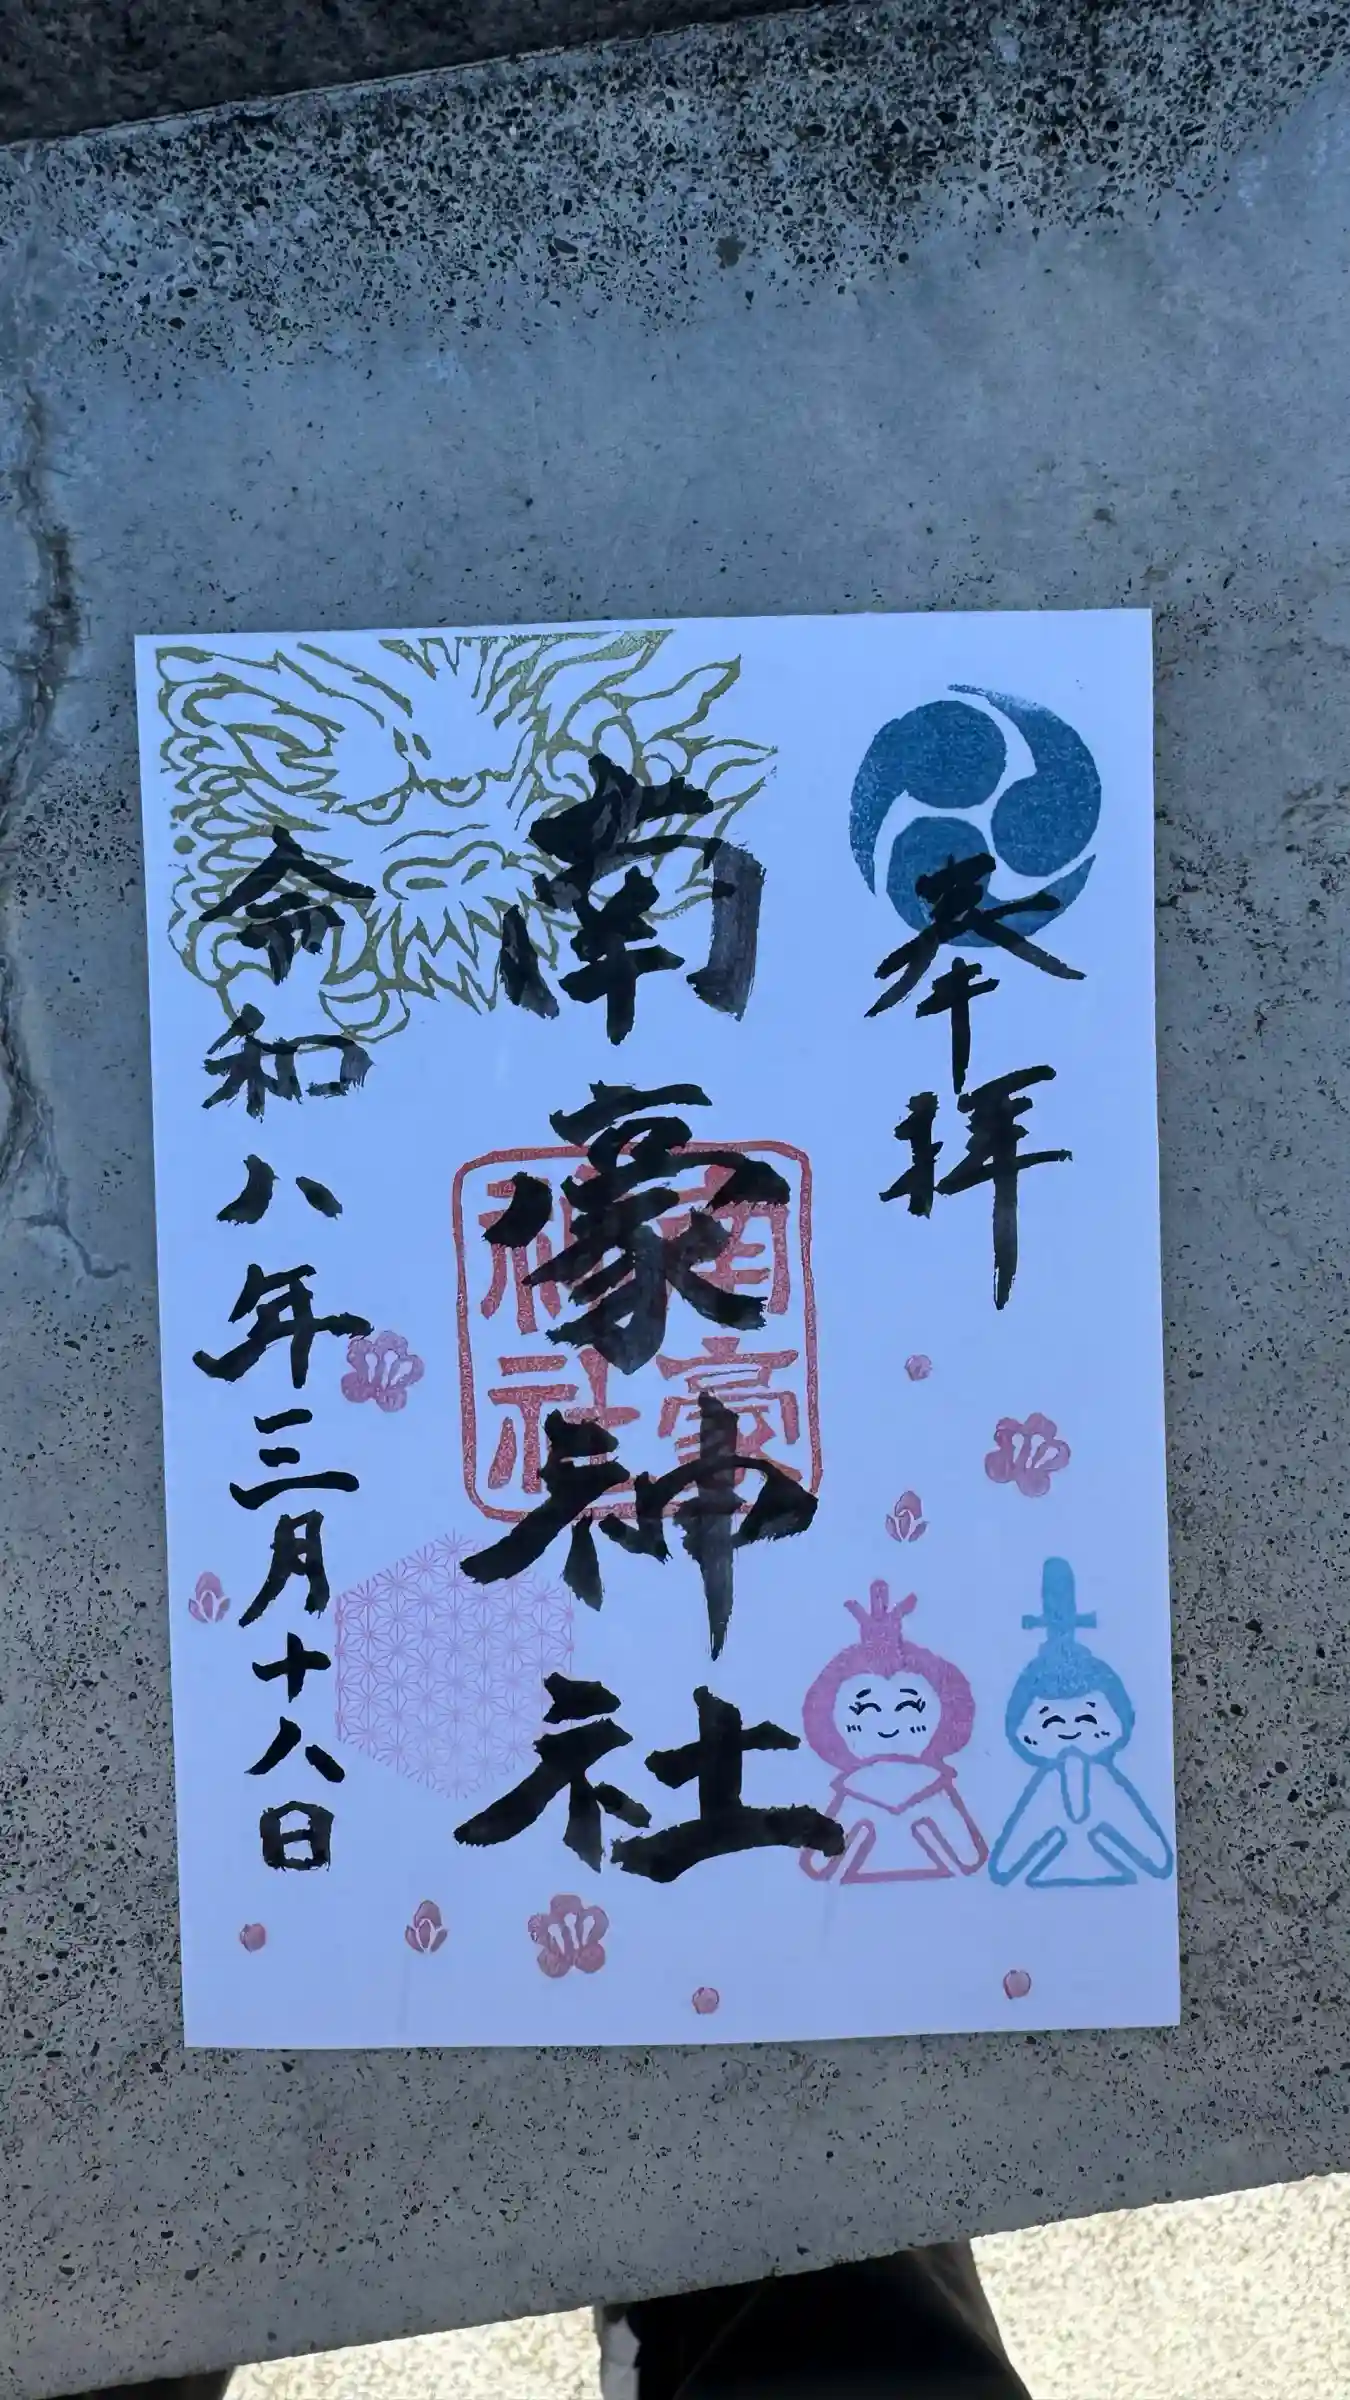 奉拝
南豪神社
南豪神社
令和八年三月十八日